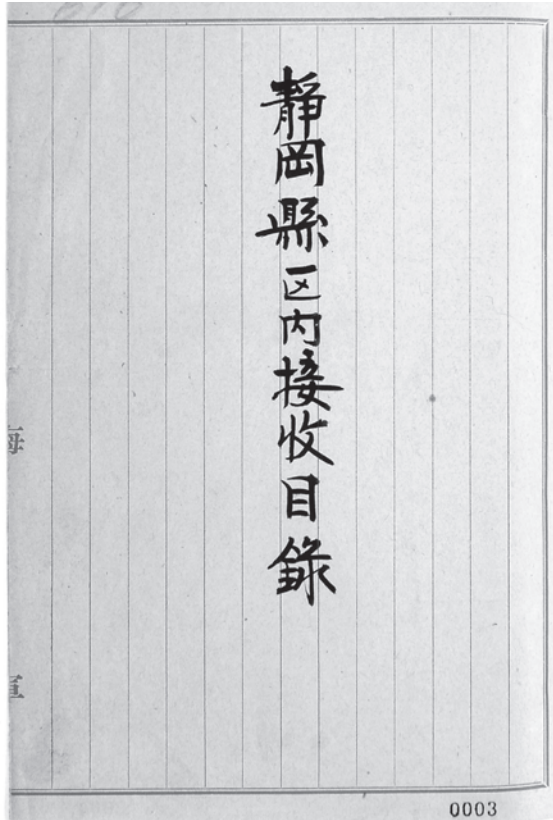 靜岡縣区内接收目錄
海
軍
0003